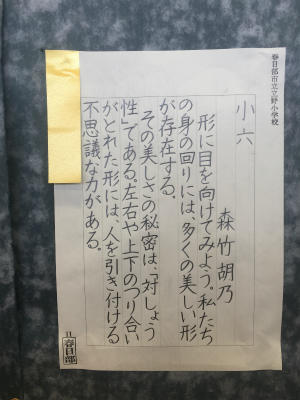 春日部市立立野小学校
小六
森竹胡乃
形に目を向けてみよう。私たち
の身の回りには、多くの美しい形
が存在する。
その美しさの秘密は、「対しょう
性」である。左右や上下のつり合い
がとれた形には、人を引き付ける
不思議な力がある。
11 春日部